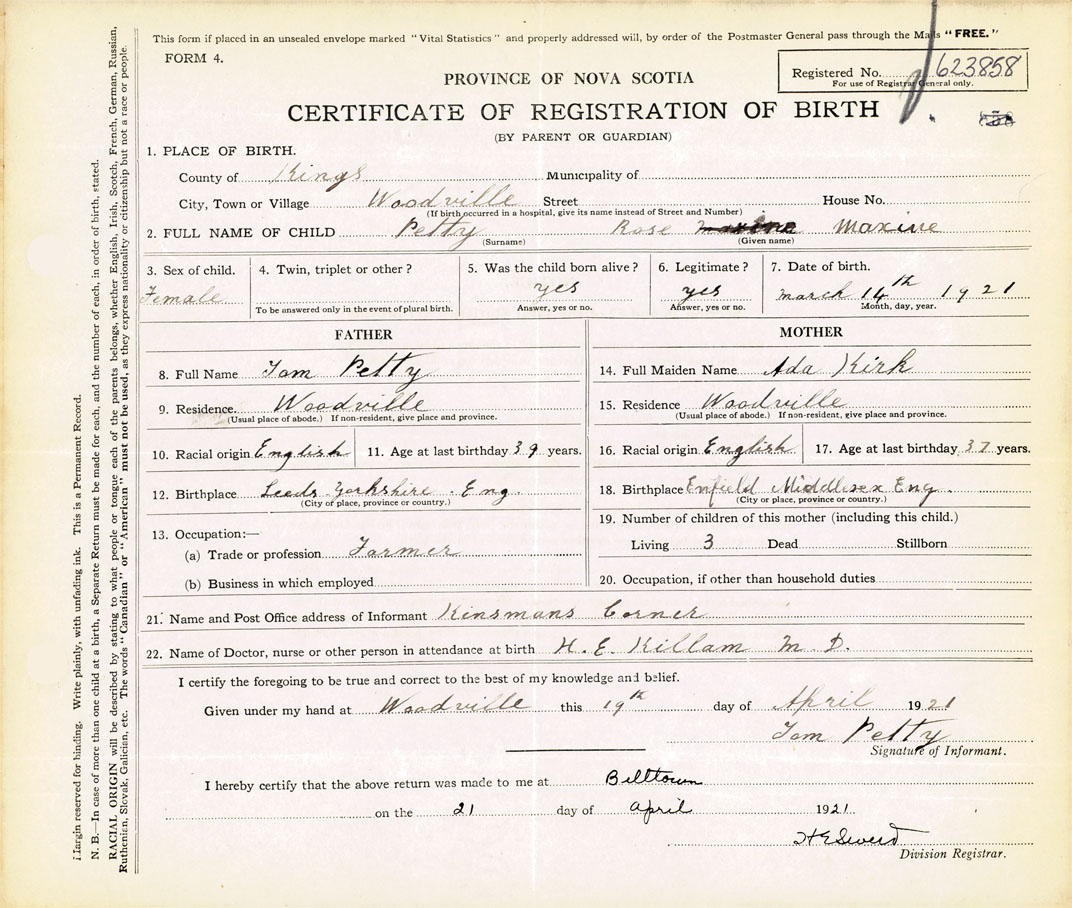 This form if placed in an unsealed envelope marked "Vital Statistics" and properly addressed will, by order of the Postmaster General pass through the Mails "FREE."
FORM 4.
Registered No. 623858
For use of Registrar General only.
PROVINCE OF NOVA SCOTIA
CERTIFICATE OF REGISTRATION OF BIRTH
(BY PARENT OR GUARDIAN)
1. PLACE OF BIRTH.
County of Kings Municipality of
City, Town or Village Woodville Street House No.
(If birth occurred in a hospital, give its name instead of Street and Number)
2. FULL NAME OF CHILD Petty Rose Maxine Maxine
(Surname) (Given name)
3. Sex of child. 4. Twin, triplet or other? 5. Was the child born alive? 6. Legitimate? 7. Date of birth.
Female yes yes March 14th 1921
To be answered only in the event of plural birth. Answer, yes or no. Answer, yes or no. Month, day, year.
FATHER
8. Full Name Tom Petty
9. Residence. Woodville
(Usual place of abode.) If non-resident, give place and province.
10. Racial origin English 11. Age at last birthday 39 years.
12. Birthplace Leeds Yorkshire . Eng.
(City or place, province or country.)
13. Occupation:—
(a) Trade or profession Farmer
(b) Business in which employed
MOTHER
14. Full Maiden Name Ada Kirk
15. Residence Woodville
(Usual place of abode.) If non-resident, give place and province.
16. Racial origin English 17. Age at last birthday 37 years.
18. Birthplace Enfield Middlesex Eng.
(City or place, province or country.)
19. Number of children of this mother (including this child.)
Living 3 Dead Stillborn
20. Occupation, if other than household duties
21. Name and Post Office address of Informant Kinsmans Corner
22. Name of Doctor, nurse or other person in attendance at birth H. E. Killam M. D.
I certify the foregoing to be true and correct to the best of my knowledge and belief.
Given under my hand at Woodville this 19th day of April 1921
Tom Petty
Signature of Informant.
I hereby certify that the above return was made to me at Billtown
on the 21 day of April 1921
Division Registrar.
Margin reserved for binding. Write plainly, with unfading ink. This is a Permanent Record.
N. B.—In case of more than one child at a birth, a Separate Return must be made for each, and the number of each, in order of birth, stated.
RACIAL ORIGIN will be described by stating to what people or tongue each of the parents belongs, whether English, Irish, Scotch, French, German, Russian,
Ruthenian, Slovak, Galician, etc. The words "Canadian" or "American" must not be used, as they express nationality or citizenship but not a race or people.